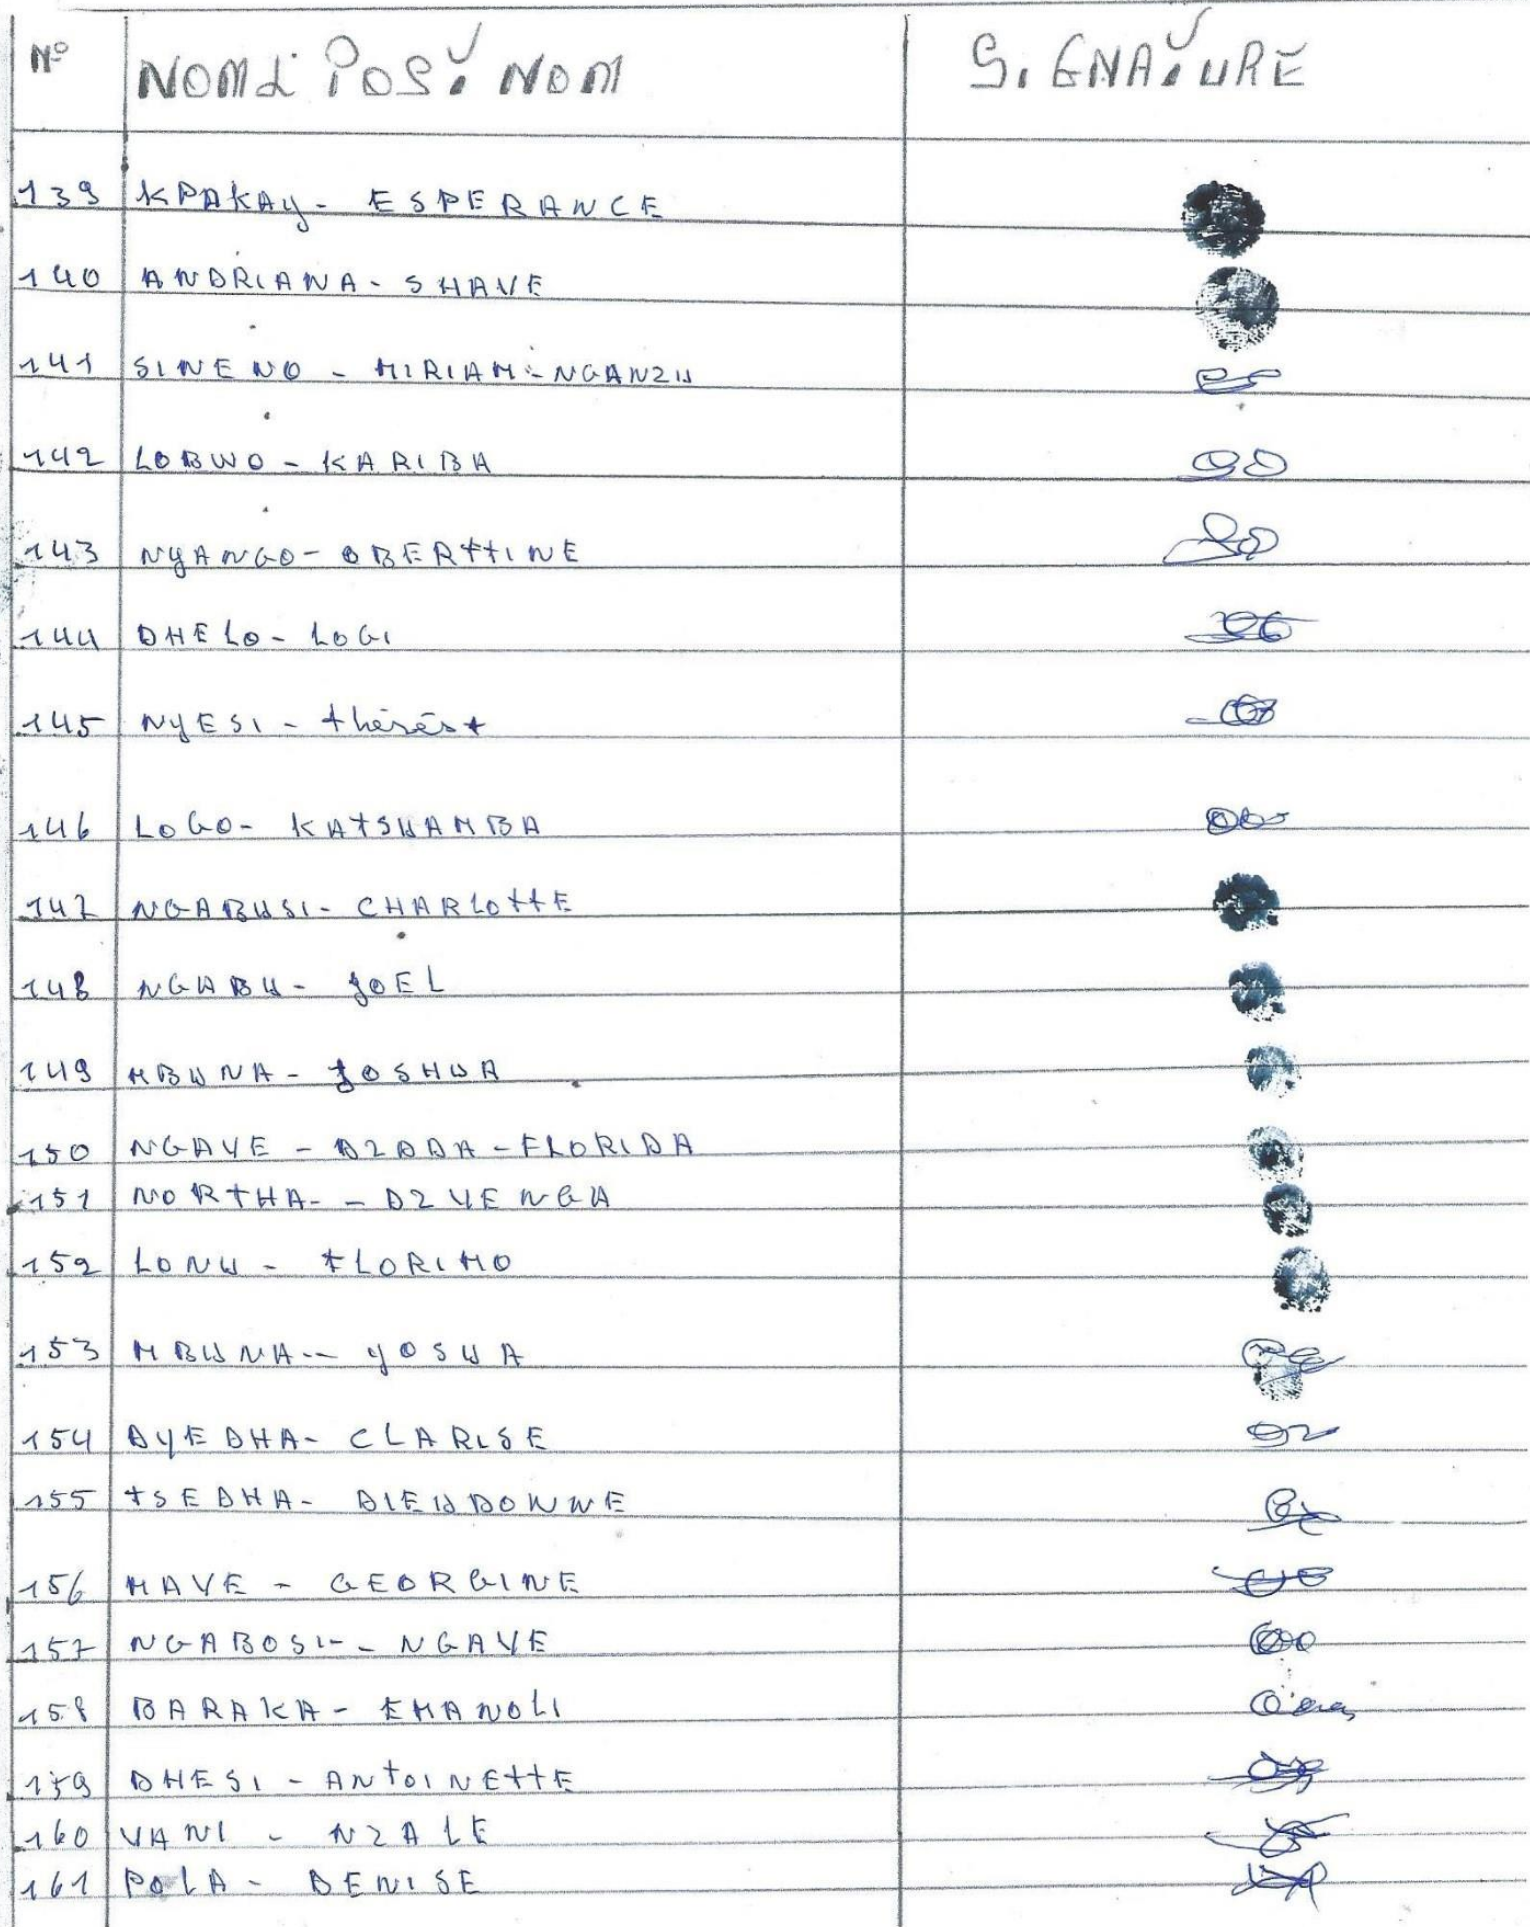 N° NOM & POST NOM SIGNATURE
139 KPAKAY - ESPERANCE
140 ANDRIANA - SHAVE
141 SINENO - MIRIAM - NGANZU
142 LOBWO - KARIBA
143 NYANGO - OBERTTINE
144 DHELO - LOGI
145 NYESI - thérèst
146 LOGO - KATSUAMBA
147 NGABUSI - CHARLOTTE
148 NGABU - JOEL
149 MBUNA - JOSHUA
150 NGAVE - DZADDA - FLORIDA
151 NORTHA - - DZVENGA
152 LONU - FLORIMO
153 MBUNA - - YOSUA
154 DYEDHA - CLARISE
155 TSEDHA - DIEUDONNE
156 MAVE - GEORGINE
157 NGABOSI - - NGAVE
158 BARAKA - EMANOLI
159 DHESI - ANTOINETTE
160 VANI - NZALE
161 POLA - DENISE